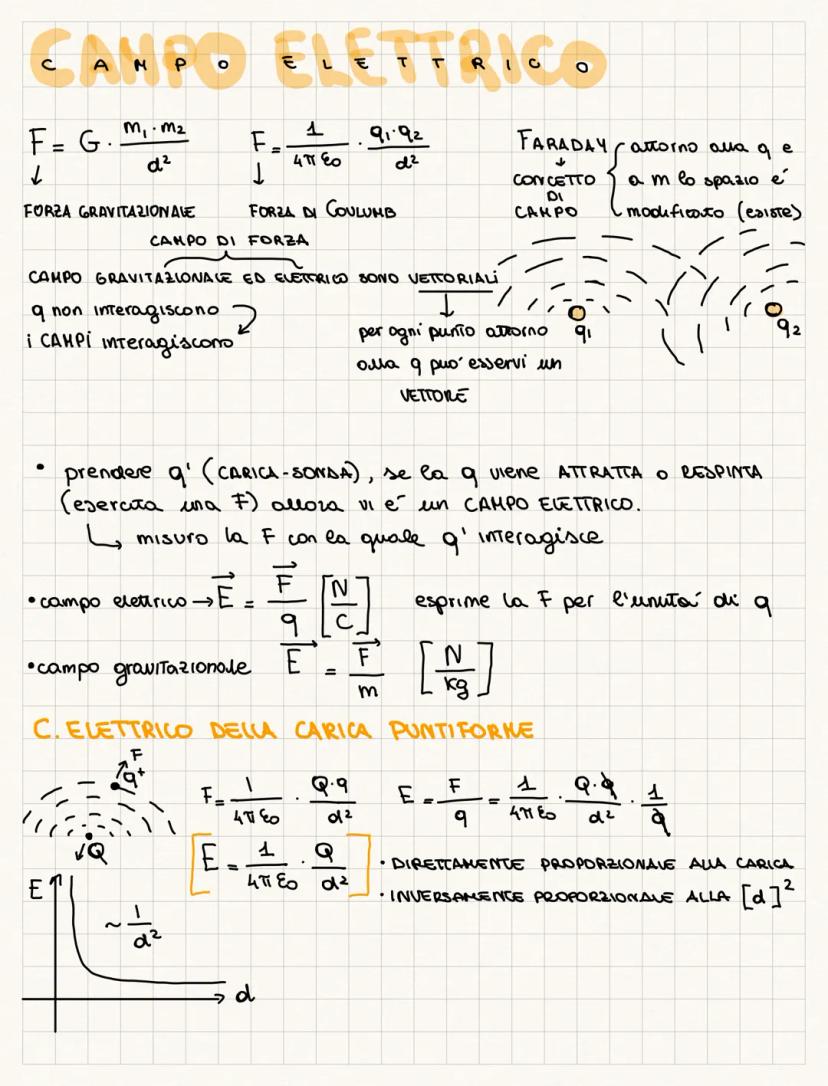 CAMPO ELETTRICO
C A M P O E L E T T R I C O
F = G · m₁·m₂ / d²
F = 1 / 4πε₀ · q₁·q₂ / d²
↓ ↓
FORZA GRAVITAZIONALE FORZA DI COULUMB
FARADAY
↓
CONCETTO
DI
CAMPO
attorno alla q e
a m lo spazio e'
modificato (esiste)
CAMPO DI FORZA
CAMPO GRAVITAZIONALE ED ELETTRICO SONO VETTORIALI
q non interagiscono
i CAMPI interagiscono
↓
per ogni punto attorno
alla q puo' esservi un
VETTORE
q₁
q₂
• prendere q' (CARICA-SONDA), se la q viene ATTRATTA o RESPINTA
(esercita una F) allora vi e' un CAMPO ELETTRICO.
↳ misuro la F con la quale q' interagisce
• campo elettrico → E⃗ = F⃗ / q [N / C] esprime la F per l'unita' di q
• campo gravitazionale E⃗ = F⃗ / m [N / kg]
C. ELETTRICO DELLA CARICA PUNTIFORME
F
q⁺
Q
F = 1 / 4πε₀ · Q·q / d²
E = F / q = 1 / 4πε₀ · Q·q / d² · 1 / q
[E = 1 / 4πε₀ · Q / d²]
• DIRETTAMENTE PROPORZIONALE ALLA CARICA
• INVERSAMENTE PROPORZIONALE ALLA [d]²
E
~ 1 / d²
d